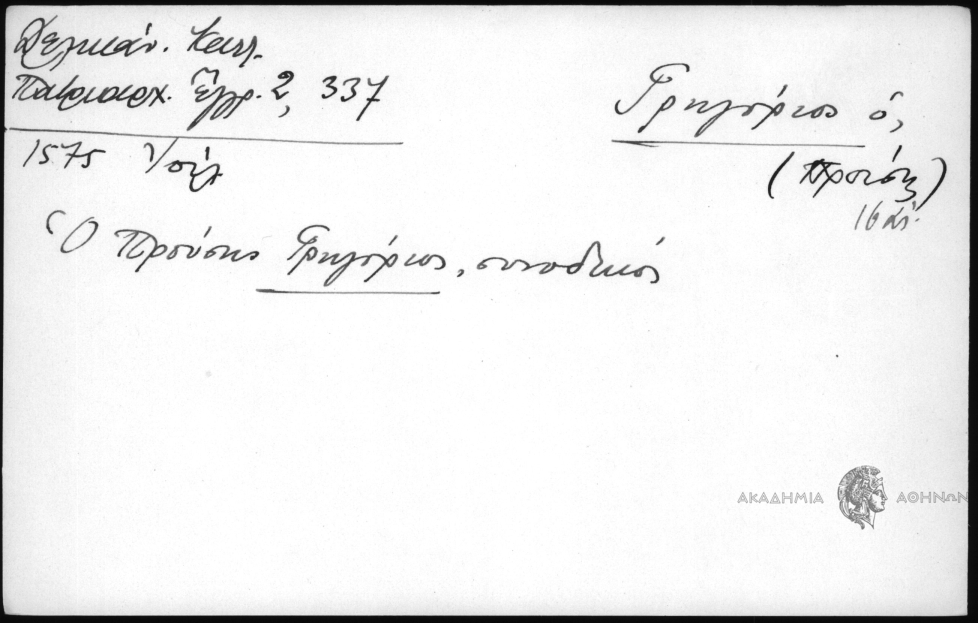 Δελικάν. Καλλ.
Πατριαρχ. Ἔγγρ. 2, 337
1575
Ὁ Προύσης Γρηγόριος, συνοδικός
Γρηγόριος ὁ,
(Προύσης)
16 αἰ.
ΑΚΑΔΗΜΙΑ ΑΘΗΝΩΝ